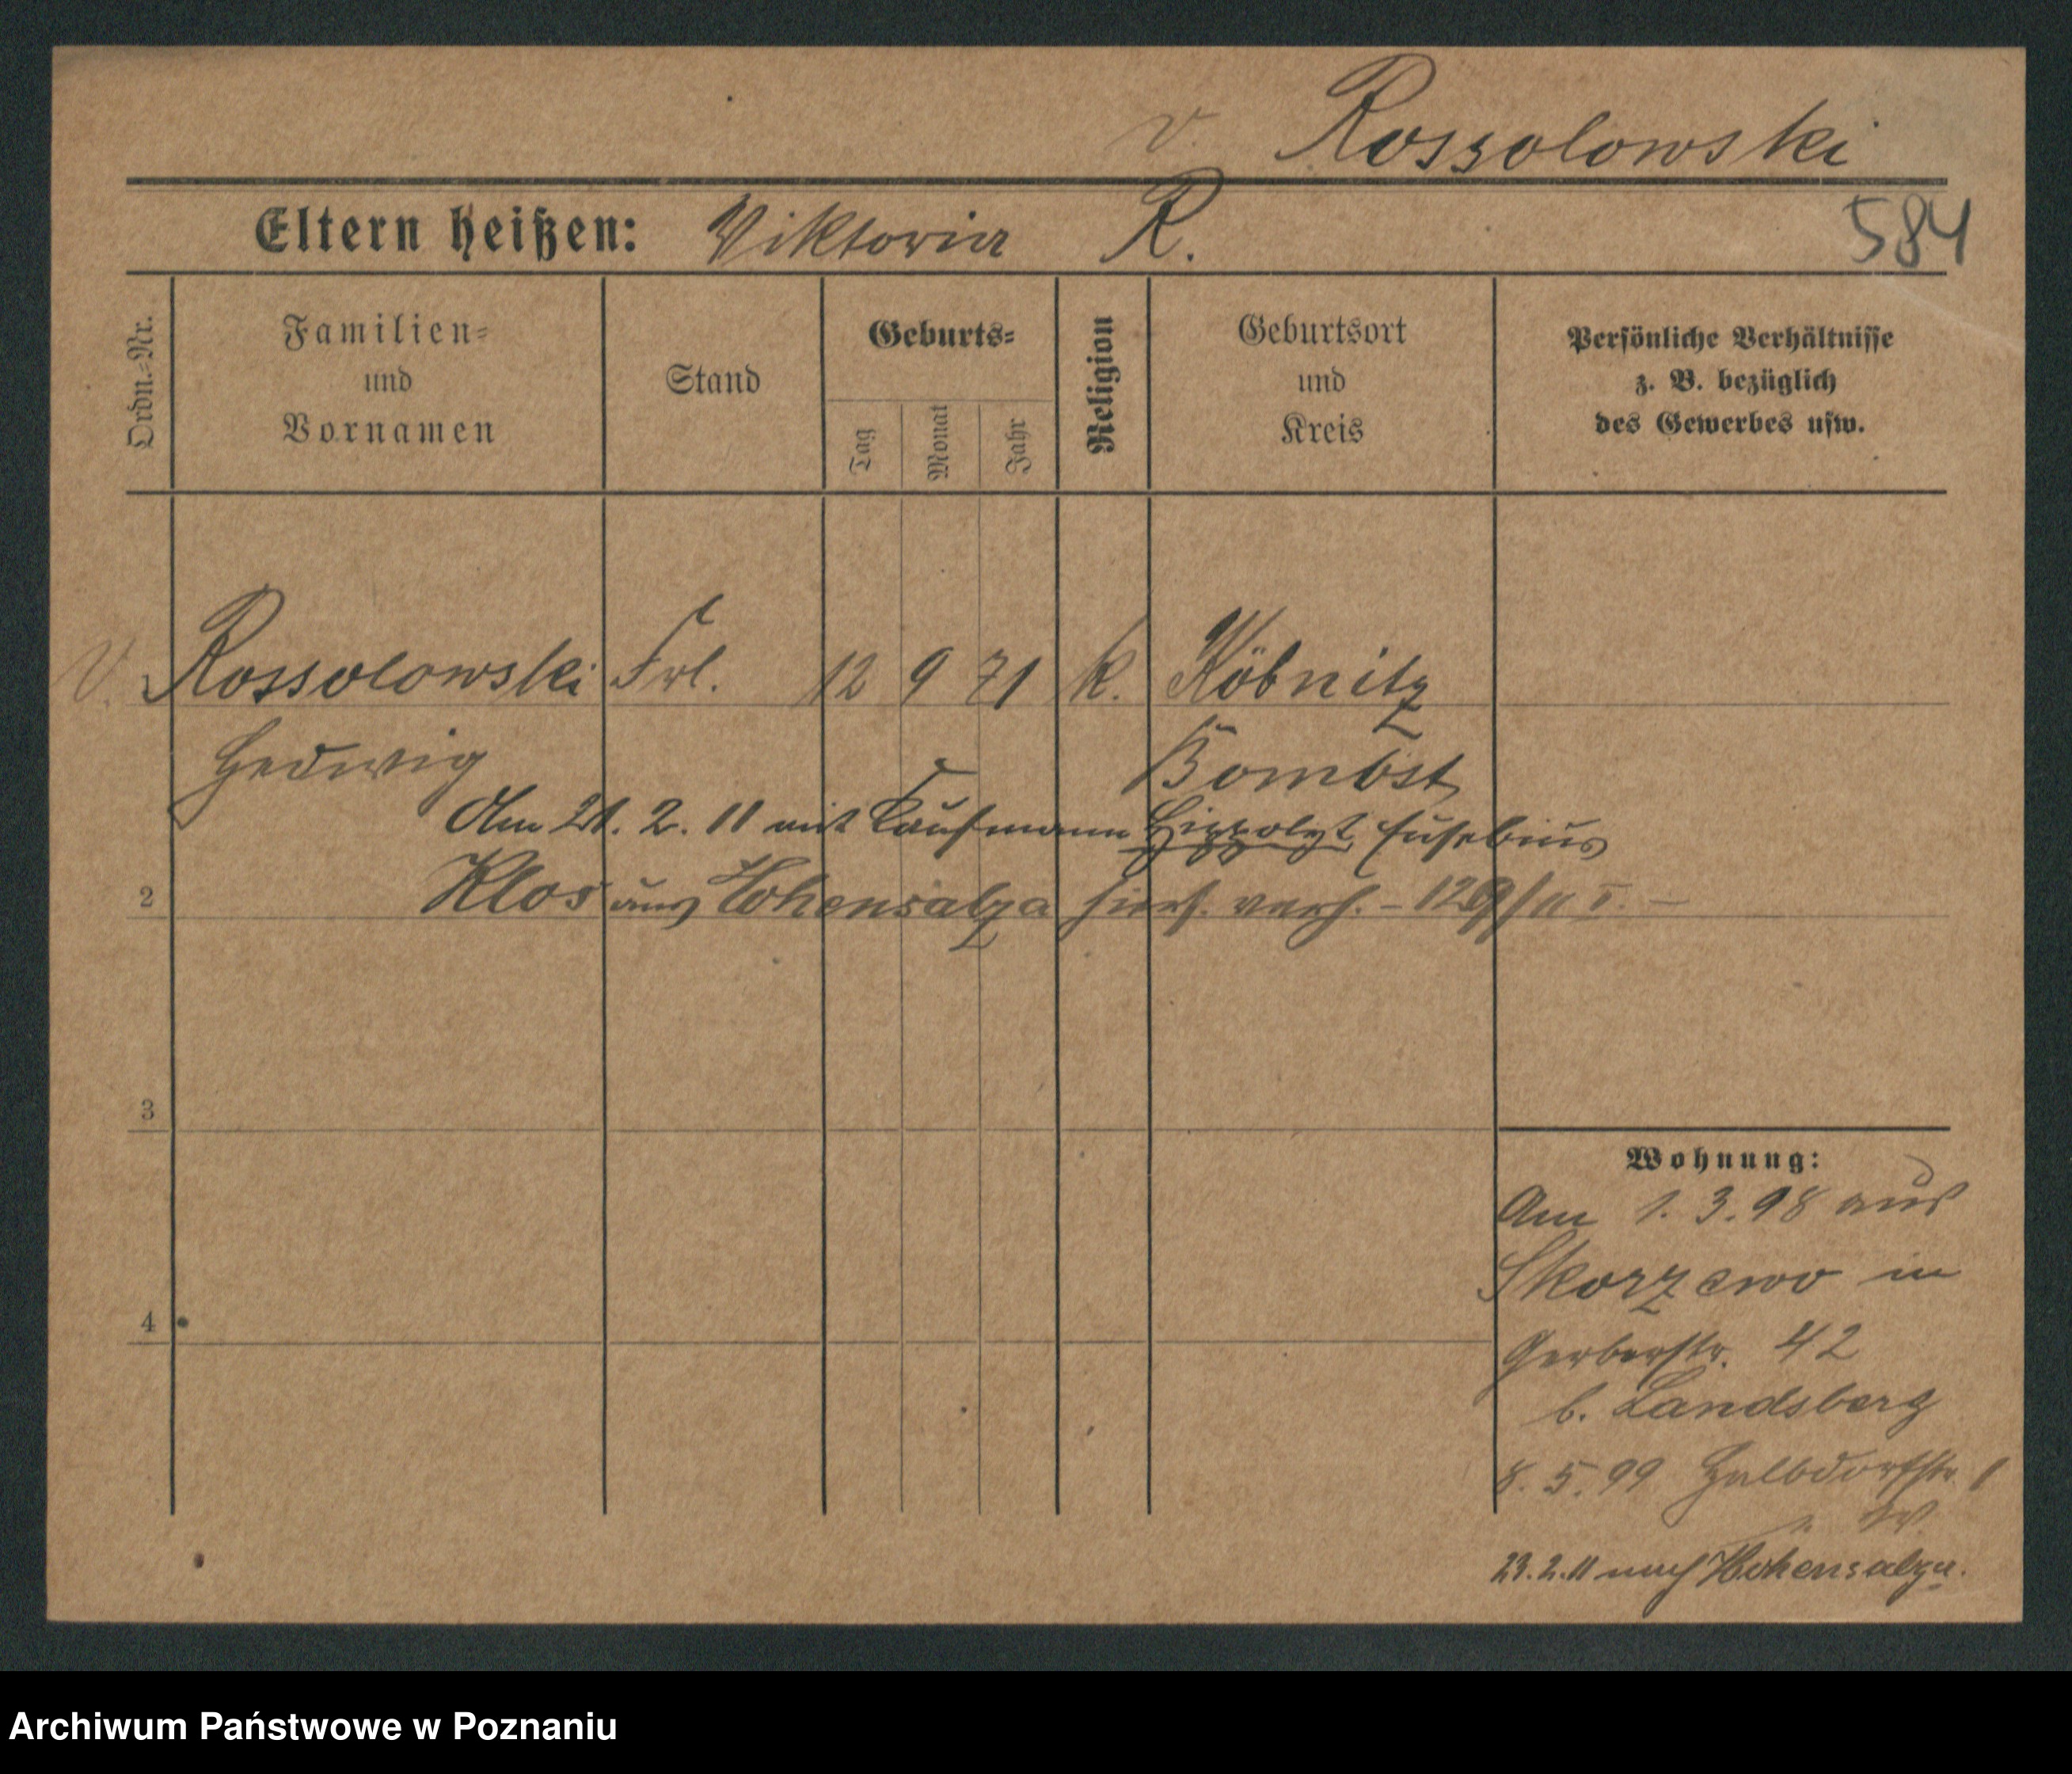 v. Rossolowski
Eltern heißen: Viktoria R.
584
Ordn.-Nr.
Familien-
und
Vornamen
Stand
Geburts-
Tag
Monat
Jahr
Religion
Geburtsort
und
Kreis
Persönliche Verhältnisse
z. B. bezüglich
des Gewerbes usw.
v. Rossolowski Frl. 12 9 71 k. Köbnitz
Hedwig Bombst
Am 21. 2. 11 mit Kaufmann Hippolyt Eusebius
2 Klos aus Hohensalza hier verh.
3
4
Wohnung:
Am 1. 3. 98 aus
Skorzewo in
Gerberstr. 42
b. Landsberg
8. 5. 99 Halbdorfstr. 1
23.2.11 nach Hohensalza.
Archiwum Państwowe w Poznaniu